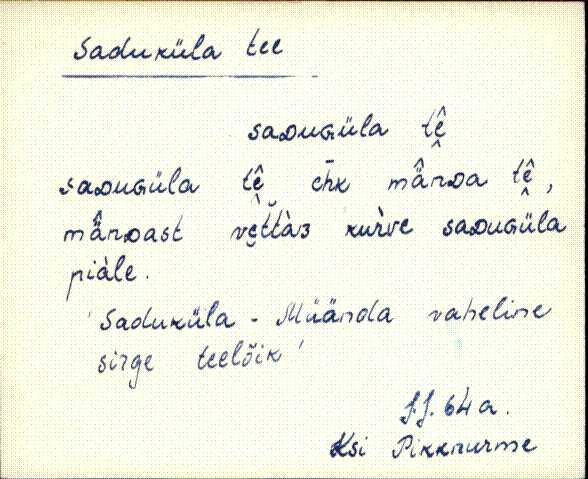 Saduküla tee
saᴅuɢüla tê̬
saᴅuɢüla tê̬ ēhk mä̂nᴅa tê̬,
mä̂nᴅast ve̬t̆tàz kur̀ve saᴅuɢüla
piàle.
'Saduküla - Müända vaheline
sirge teelõik'
J.J. 64 a.
Ksi Pikknurme